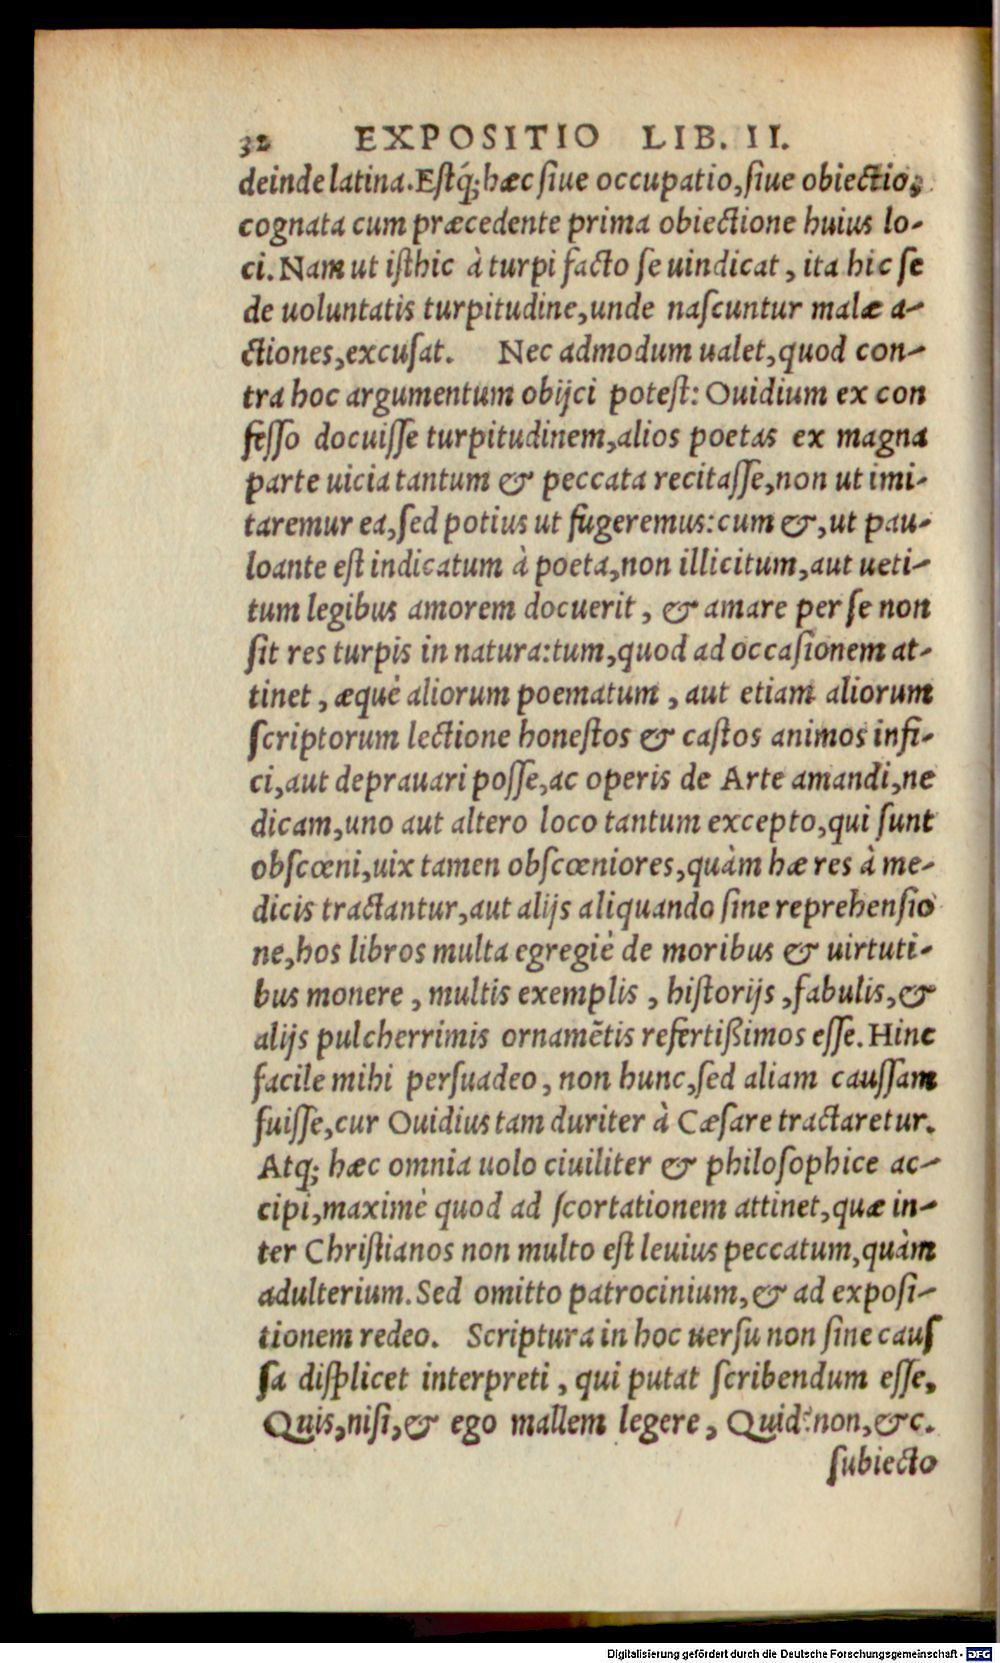 32 EXPOSITIO LIB. II.
deinde latina. Estq́; hæc siue occupatio, siue obiectio,
cognata cum præcedente prima obiectione huius lo-
ci. Nam ut isthic à turpi facto se uindicat, ita hic se
de uoluntatis turpitudine, unde nascuntur malæ a-
ctiones, excusat. Nec admodum ualet, quod con-
tra hoc argumentum obijci potest: Ouidium ex con
fesso docuisse turpitudinem, alios poetas ex magna
parte uicia tantum & peccata recitasse, non ut imi-
taremur ea, sed potius ut fugeremus: cum &, ut pau-
loante est indicatum à poeta, non illicitum, aut ueti-
tum legibus amorem docuerit, & amare per se non
sit res turpis in natura: tum, quod ad occasionem at-
tinet, æquè aliorum poematum, aut etiam aliorum
scriptorum lectione honestos & castos animos infi-
ci, aut deprauari posse, ac operis de Arte amandi, ne
dicam, uno aut altero loco tantum excepto, qui sunt
obscœni, uix tamen obscœniores, quàm hæ res à me-
dicis tractantur, aut alijs aliquando sine reprehensio
ne, hos libros multa egregiè de moribus & uirtuti-
bus monere, multis exemplis, historijs, fabulis, &
alijs pulcherrimis ornamētis refertißimos esse. Hinc
facile mihi persuadeo, non hunc, sed aliam caussam
fuisse, cur Ouidius tam duriter à Cæsare tractaretur.
Atq; hæc omnia uolo ciuiliter & philosophice ac-
cipi, maximè quod ad scortationem attinet, quæ in-
ter Christianos non multo est leuius peccatum, quàm
adulterium. Sed omitto patrocinium, & ad exposi-
tionem redeo. Scriptura in hoc uersu non sine caus
sa displicet interpreti, qui putat scribendum esse,
Quis, nisi, & ego mallem legere, Quid? non, &c.
subiecto
Digitalisierung gefördert durch die Deutsche Forschungsgemeinschaft - DFG